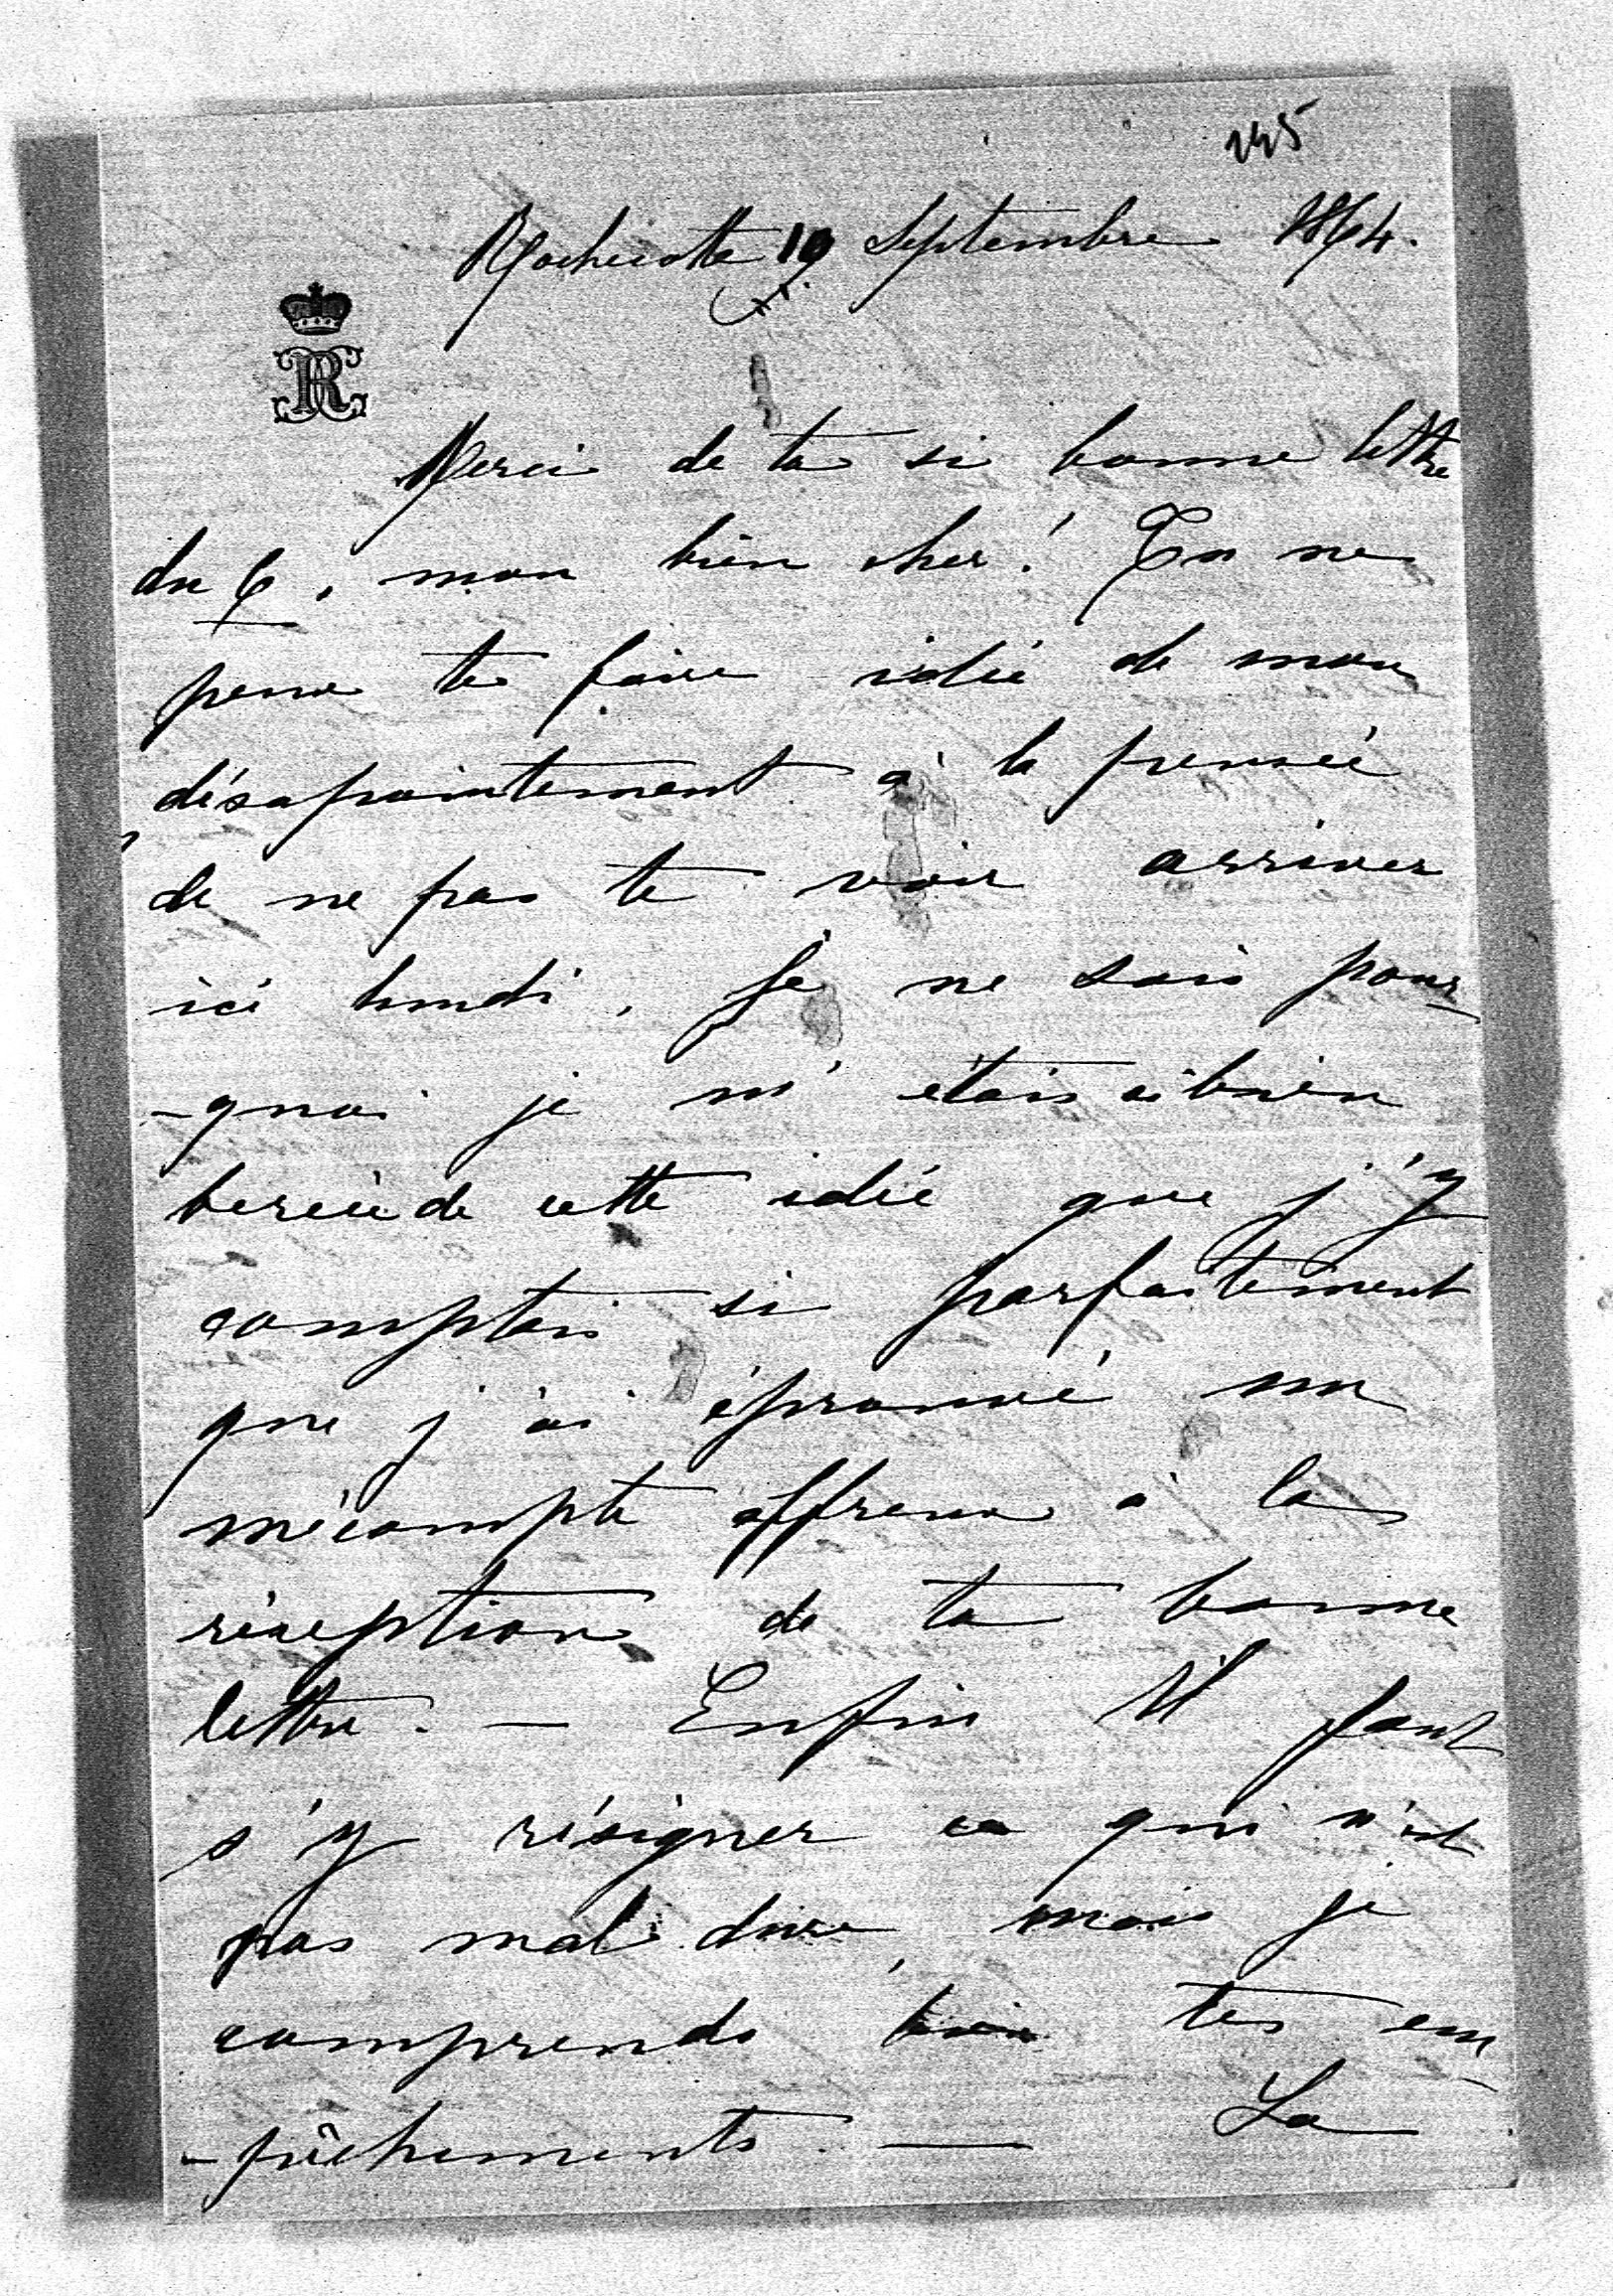 245
Rochecotte 10 Septembre 1864.
R
Merci de ta si bonne lettre
du 6, mon bien cher! Tu ne
peux te faire idée de mon
désapointement à la pensée
de ne pas te voir arriver
ici lundi. Je ne sais pour-
-quoi je m'étais si bien
bercée de cette idée que j'y
comptais si parfaitement
que j'ai éprouvé un
mécompte affreux à la
réception de ta bonne
lettre. — Enfin il faut
s'y résigner ce qui n'est
pas mal dure, mais je
comprends bien tes em-
-pêchements. — La